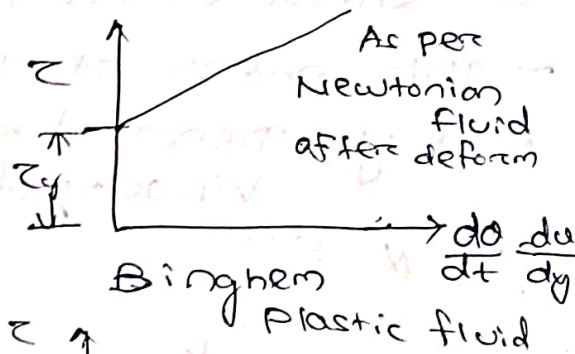 τ
As per
Newtonian
fluid
after deform
τy
dθ/dt du/dy
Binghem
plastic fluid
τ